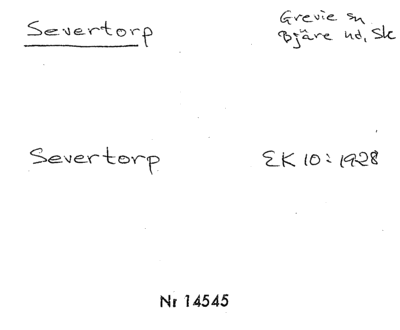 Severtorp
Grevie sn
Bjäre hd, Sk
Severtorp
EK 10:1928
Nr 14545